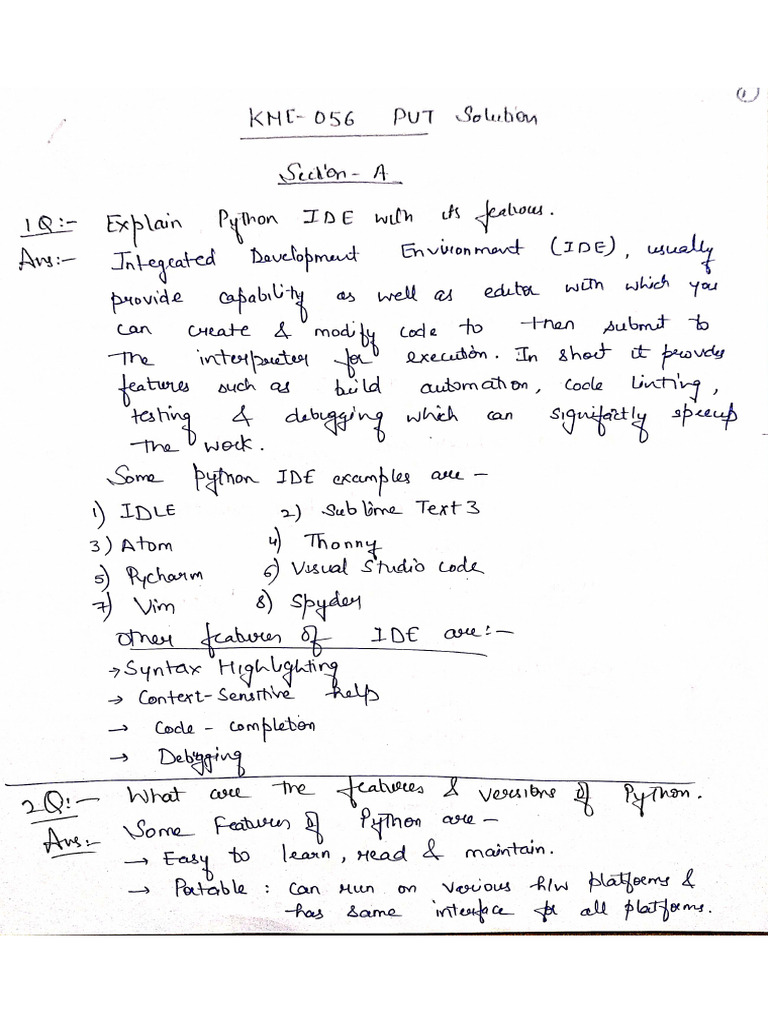 ①
KME-056 PUT Solution
Section - A
1Q:- Explain Python IDE with its features.
Ans:- Integrated Development Environment (IDE), usually
provide capability as well as editor with which you
can create & modify code to then submit to
the interpreter for execution. In short it provides
features such as build automation, code linting,
testing & debugging which can significtly speedup
the work.
Some Python IDE examples are -
1) IDLE 2) Sublime Text 3
3) Atom 4) Thonny
5) Pycharm 6) Visual Studio code
7) Vim 8) Spyder
Other features of IDE are:-
→ Syntax Highlighting
→ Context-Sensitive help
→ Code - completion
→ Debugging
2Q:- What are the features & versions of Python.
Ans:- Some Features of Python are -
→ Easy to learn, read & maintain.
→ Portable : can run on various h/w platforms &
has same interface for all platforms.